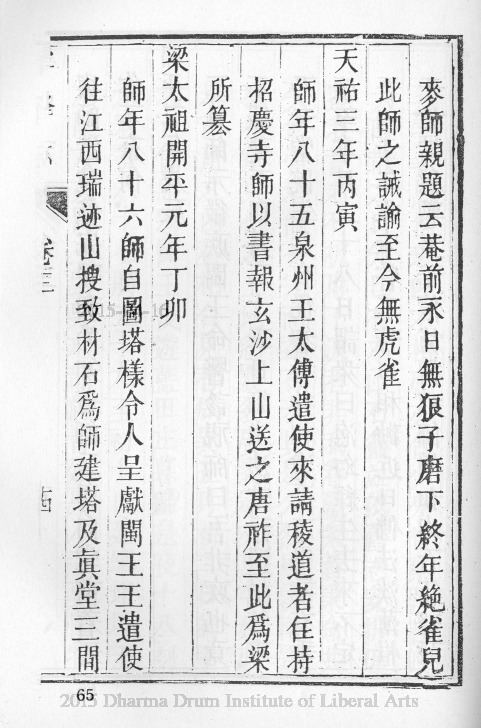 麥師親題云菴前永日無狼子磨下終年絶雀兒
此師之誠諭至今無虎雀
天祐三年丙寅
師年八十五泉州王太傅遣使來請稜道者住持
招慶寺師以書報玄沙上山送之唐祚至此爲梁
所篡
梁太祖開平元年丁卯
師年八十六師自圖塔樣令人呈獻閩王王遣使
往江西瑞迹山搜致材石爲師建塔及眞堂三間
卷三
十四
65
2015 Dharma Drum Institute of Liberal Arts